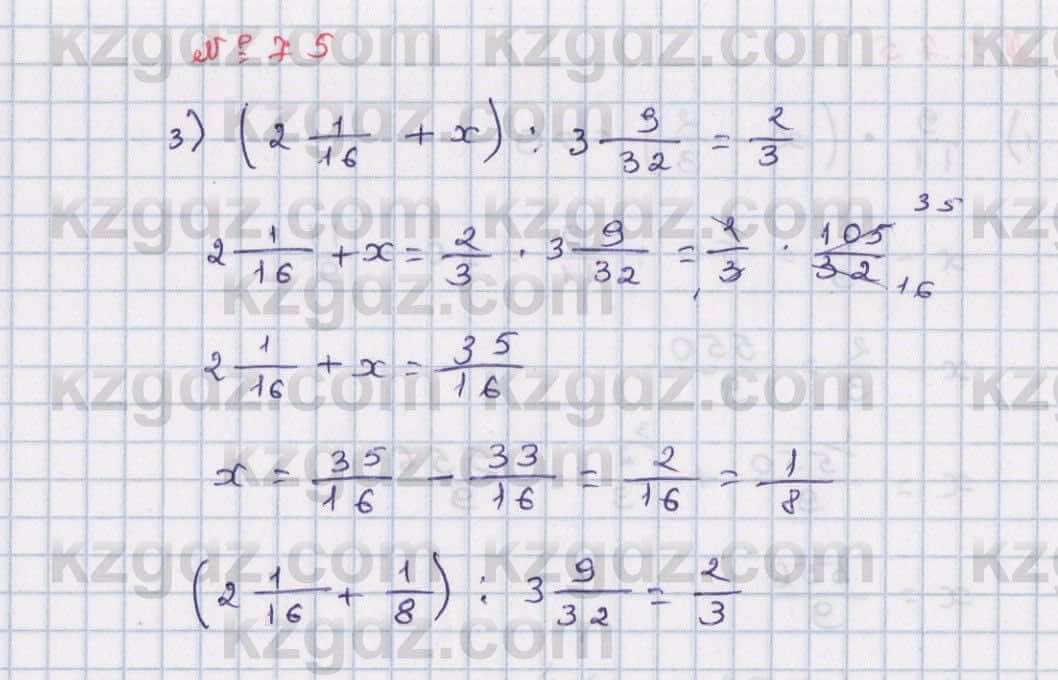 № 75
3) (2 1/16 + x) : 3 9/32 = 2/3
2 1/16 + x = 2/3 · 3 9/32 = 2/3 · 105/32 35 16
2 1/16 + x = 35/16
x = 35/16 - 33/16 = 2/16 = 1/8
(2 1/16 + 1/8) : 3 9/32 = 2/3
kzgdz.com